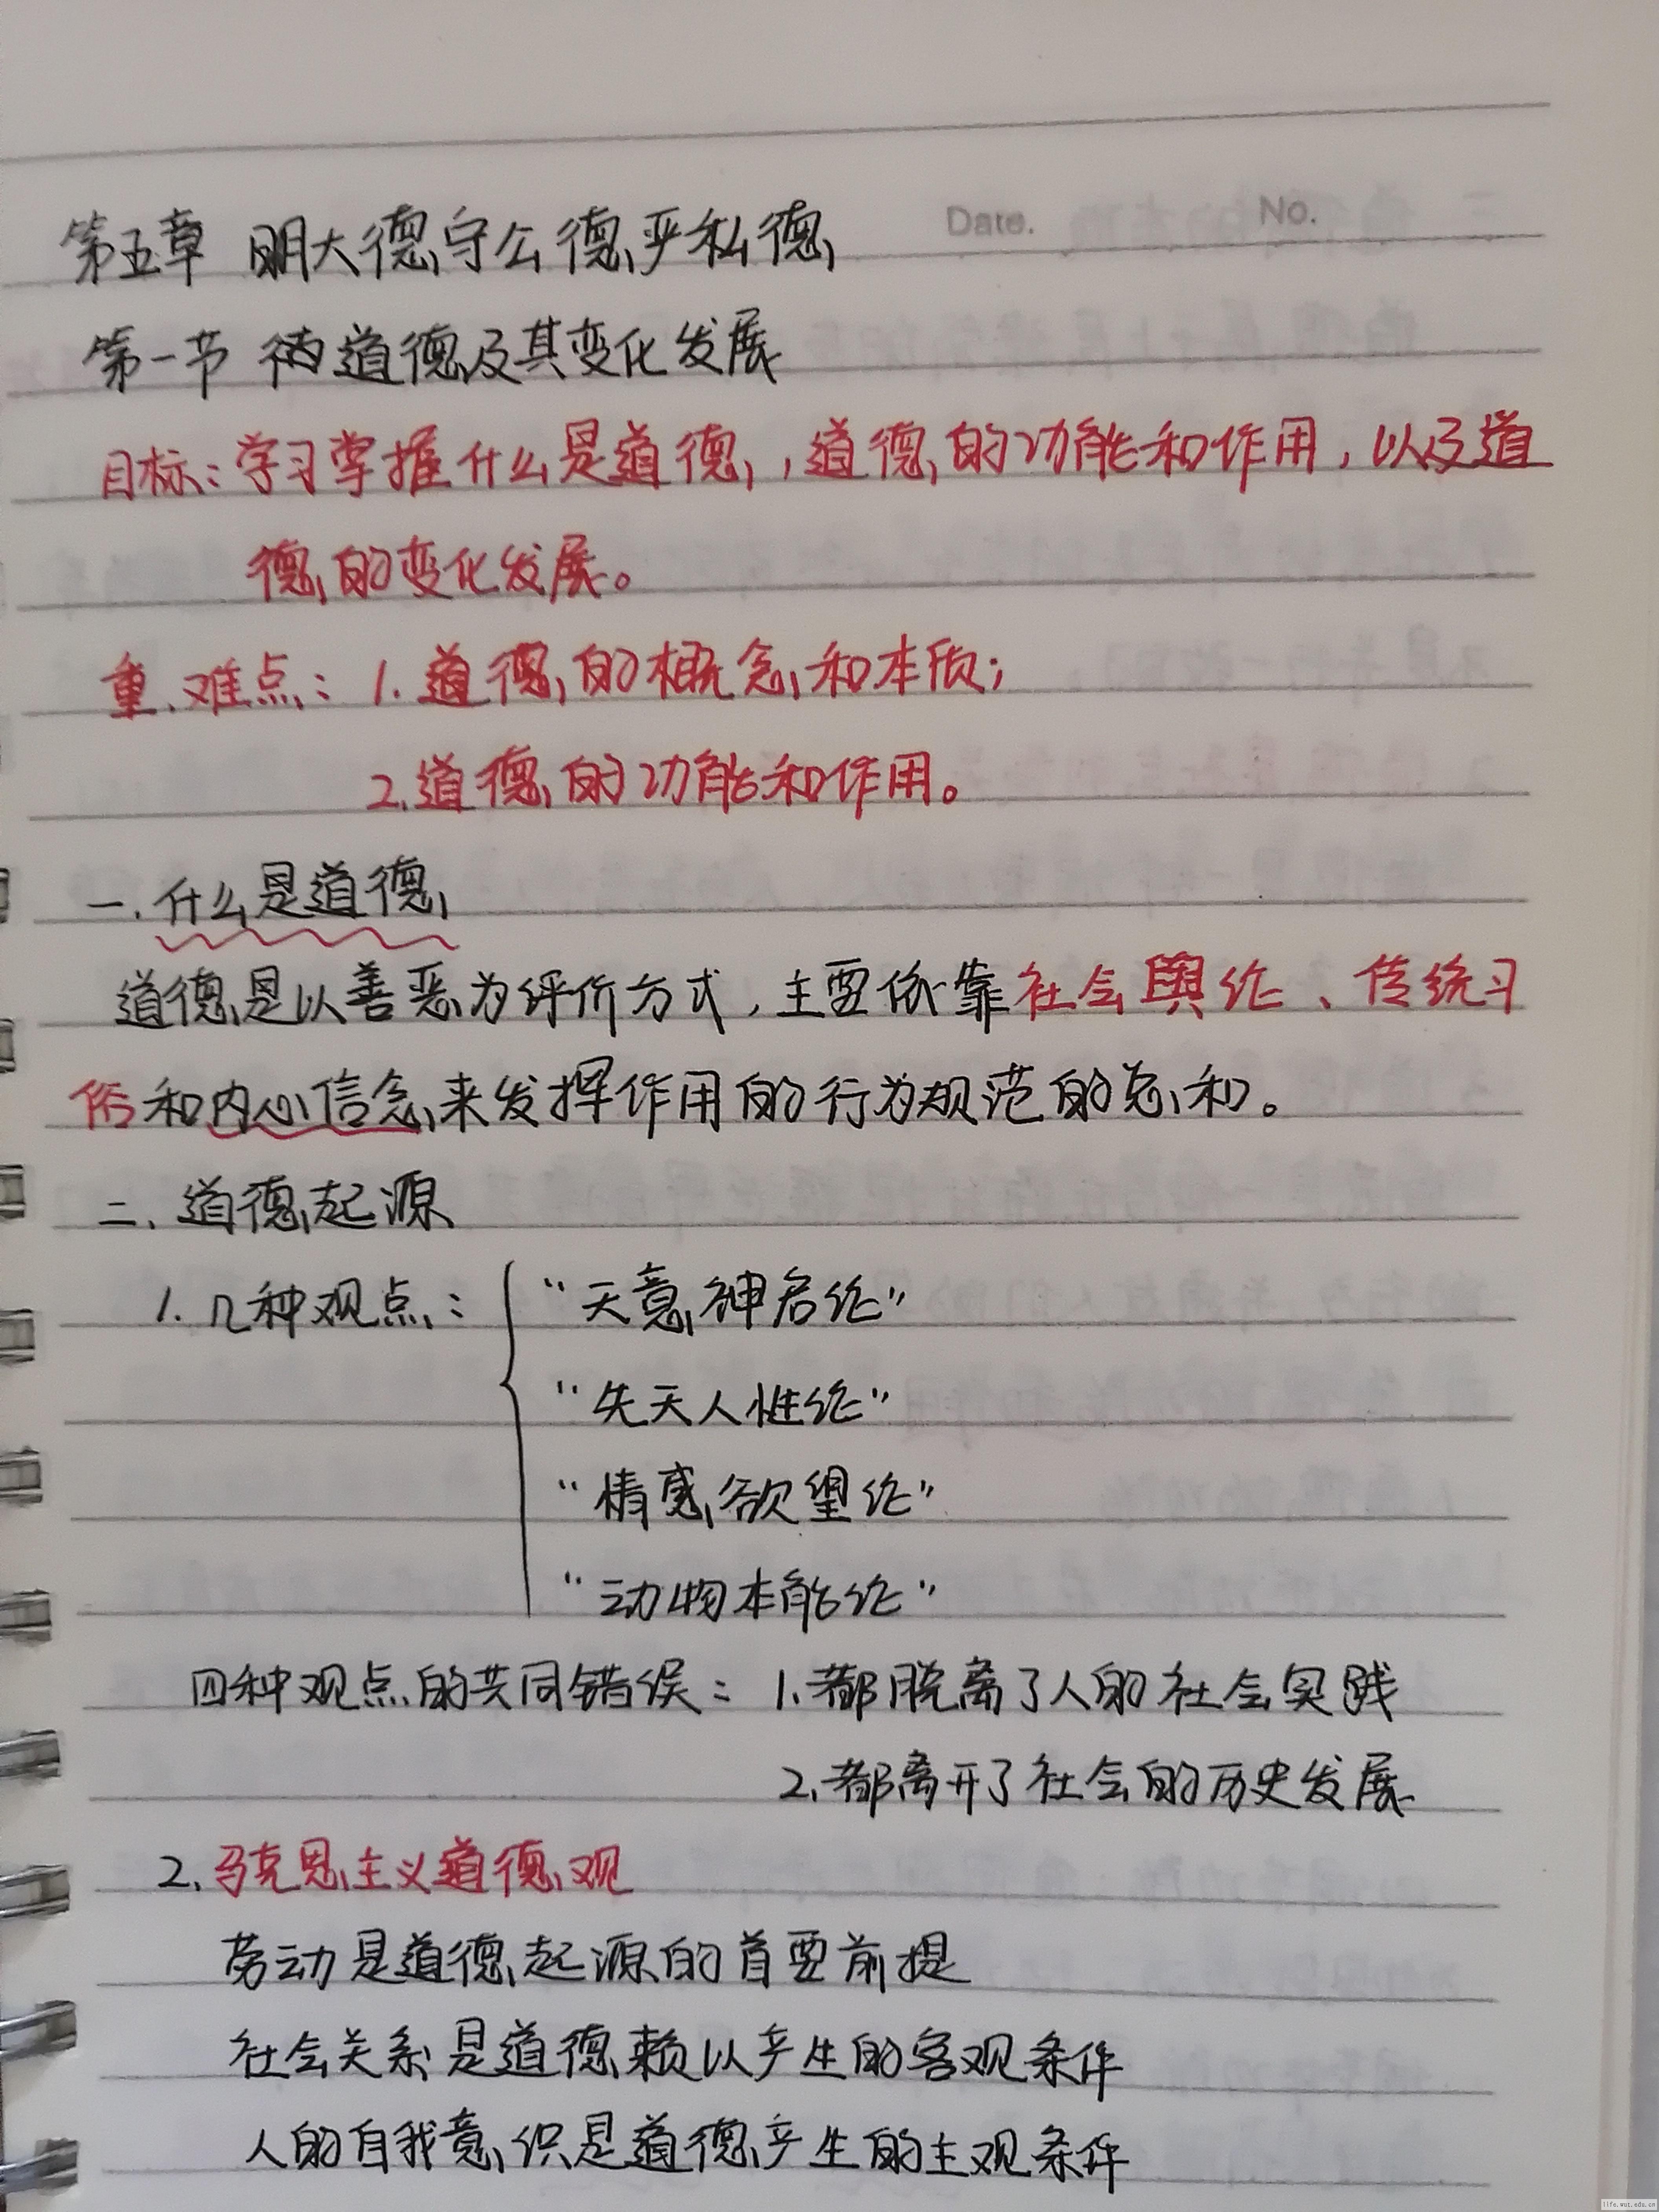 Date. No.
第五章 明大德守公德严私德
第一节 道德及其变化发展
目标:学习掌握什么是道德,道德的功能和作用,以及道
德的变化发展。
重、难点:1.道德的概念和本质;
2.道德的功能和作用。
一.什么是道德
道德是以善恶为评价方式,主要依靠社会舆论、传统习
俗和内心信念来发挥作用的行为规范的总和。
二、道德起源
1.几种观点:
“天意神启论”
“先天人性论”
“情感欲望论”
“动物本能论”
四种观点的共同错误:1.都脱离了人的社会实践
2.都离开了社会的历史发展
2.马克思主义道德观
劳动是道德起源的首要前提
社会关系是道德赖以产生的客观条件
人的自我意识是道德产生的主观条件
life.wut.edu.cn